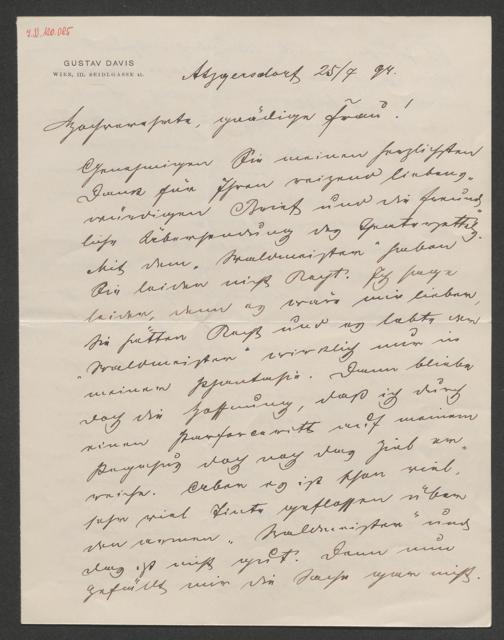 GUSTAV DAVIS
WIEN, III. SEIDLGASSE
Atzgersdorf 25/7 94.
Hochverehrte, gnädige Frau!
Genehmigen Sie meinen herzlichsten
Dank für Ihren reizend liebens-
würdigen Brief und die freund-
liche Übersendung des Theaterzettels.
Mit dem „Waldmeister“ haben
Sie leider nicht Recht. Ich sage
leider, denn es wäre mir lieber,
Sie hätten Recht und es lebte der
„Waldmeister“ wirklich nur in
meiner Phantasie. Dann bliebe
doch die Hoffnung, daß ich durch
einen Parforceritt auf meinem
Pegasus doch noch das Ziel er-
reiche. Aber es ist schon viel,
sehr viel Tinte geflossen über
den armen „Waldmeister“ und
das ist nicht gut. Denn nun
gefällt mir die Sache gar nicht.